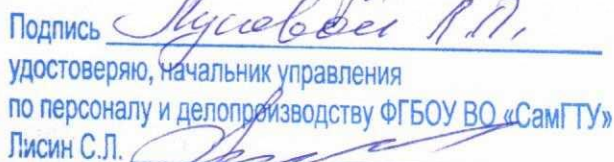 Подпись Пусовой Л.П.
удостоверяю, начальник управления
по персоналу и делопроизводству ФГБОУ ВО «СамГТУ»
Лисин С.Л.